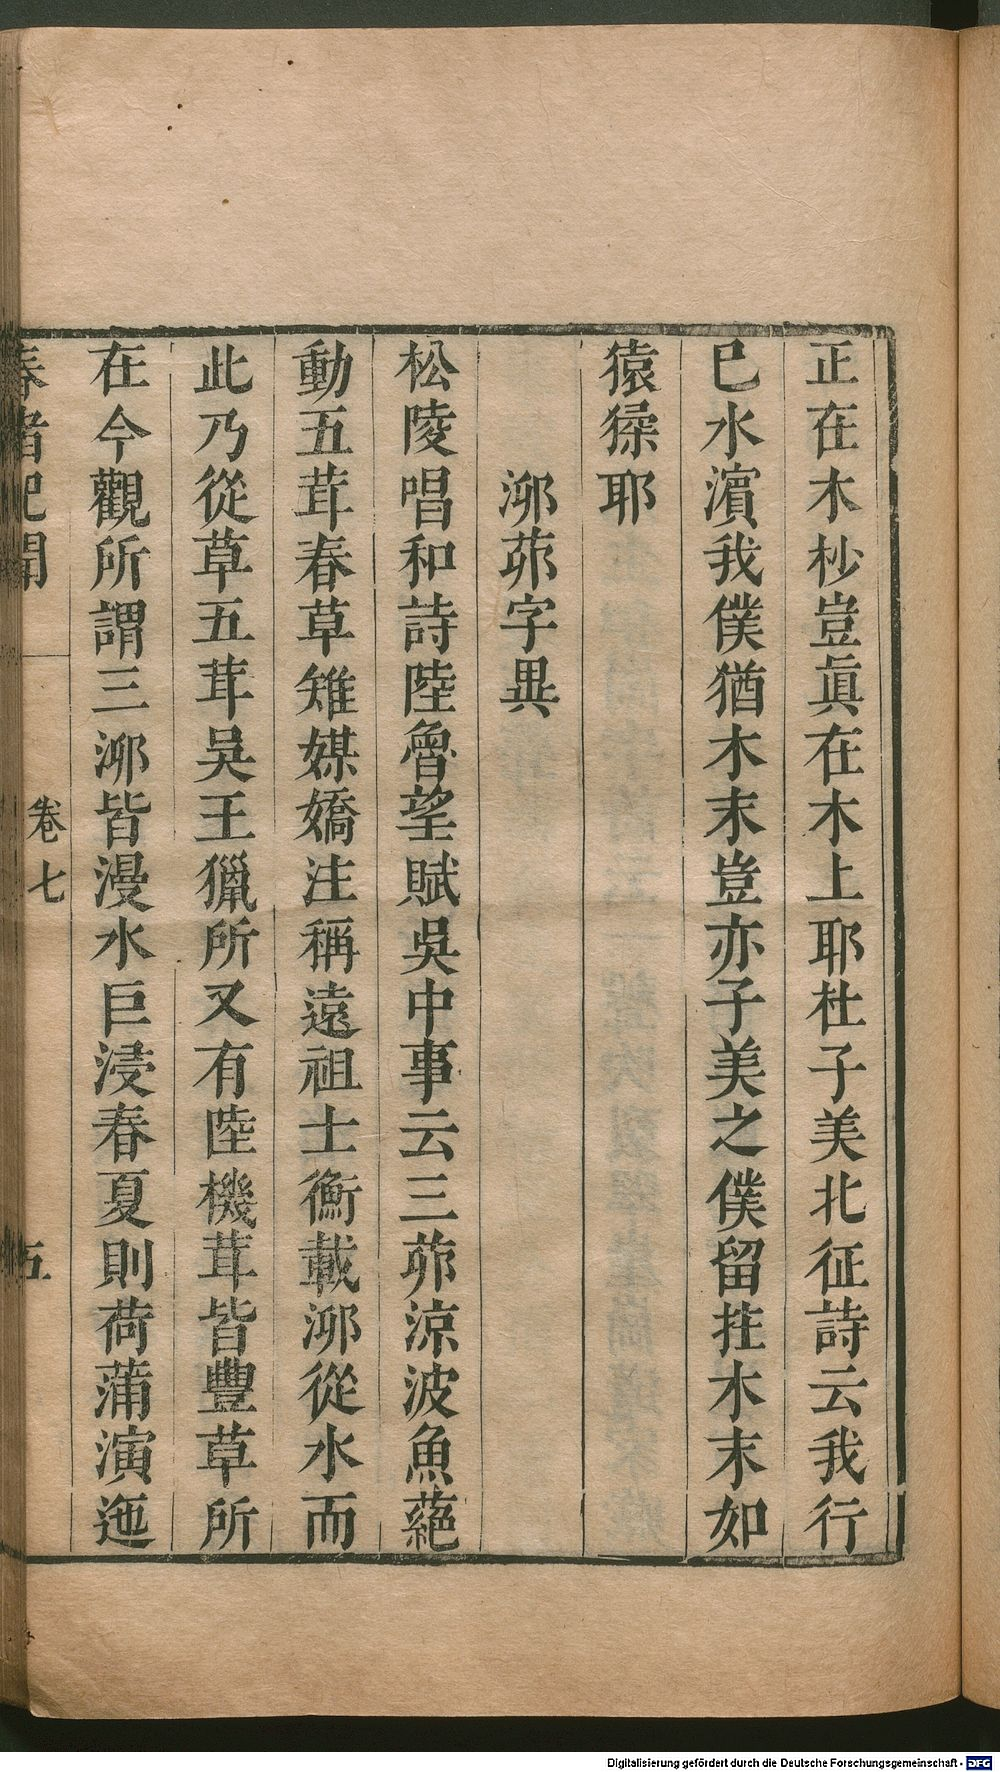 正在木杪豈眞在木上耶杜子美北征詩云我行
巳水濵我僕猶木末豈亦子美之僕留拄木末如
猿猱耶
泖茆字異
松陵唱和詩陸魯望賦吳中事云三茆涼波魚蕝
動五茸春草雉媒嬌注稱遠祖士衡載泖從水而
此乃從草五茸吳王獵所又有陸機茸皆豐草所
在今觀所謂三泖皆漫水巨浸春夏則荷蒲演迤
春渚紀聞
卷七
五
Digitalisierung gefördert durch die Deutsche Forschungsgemeinschaft - DFG